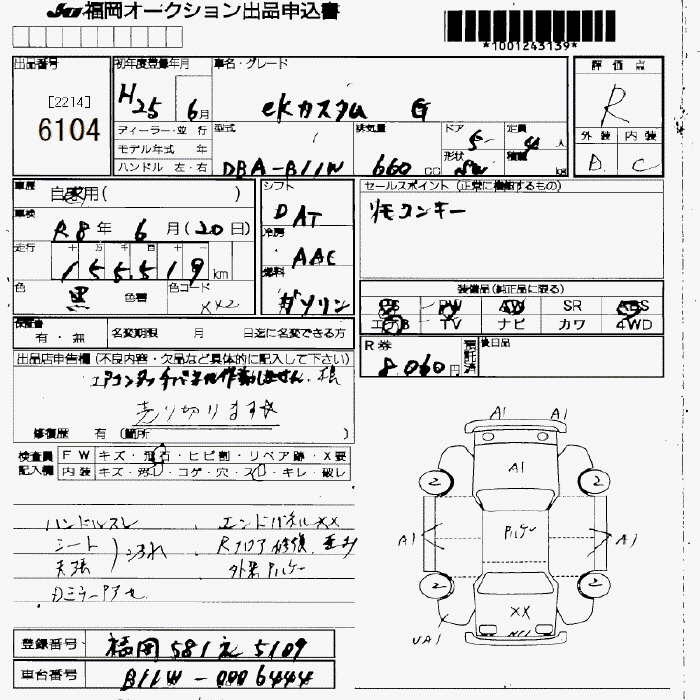 JU福岡オークション出品申込書
*1001243139*
出品番号
[2214]
6104
初年度登録年月
H25 6月
車名・グレード
ekカスタム G
評価点
R
ディーラー・並行
モデル年式 年
ハンドル 左・右
型式
DBA-B11W
排気量
660 CC
ドア
5
形状
SW
定員
4人
積載
kg
外装 内装
D C
車歴
自家用( )
車検
R8年 6月(20日)
走行
十 万 千 百 十 一
155,519 km
色
黒
色替
色コード
XX2
シフト
DAT
冷房
AAC
燃料
ガソリン
セールスポイント (正常に機能するもの)
リモコンキー
装備品(純正品に限る)
PS PW AW SR ABS
エアB TV ナビ カワ 4WD
保証書
有・無
名変期限 月 日迄に名変できる方
R券
8,060円
預託済
後日品
出品店申告欄(不良内容・欠品など具体的に記入して下さい)
エアコンタッチパネル作動しません.
売り切ります☆
修復歴 有 (箇所 )
検査員記入欄
FW キズ・飛石・ヒビ割・リペア跡・X要
内装 キズ・汚レ・コゲ・穴・スレ・キレ・破レ
ハンドルスレ
シート
天張
エンドパネルXX
Rフロア修復
外装アルケー
A1 A1
A1
2 2
アルケー
A1 A1
2 2
XX
UA1
登録番号
福岡 581 え 5109
車台番号
B11W-0006444